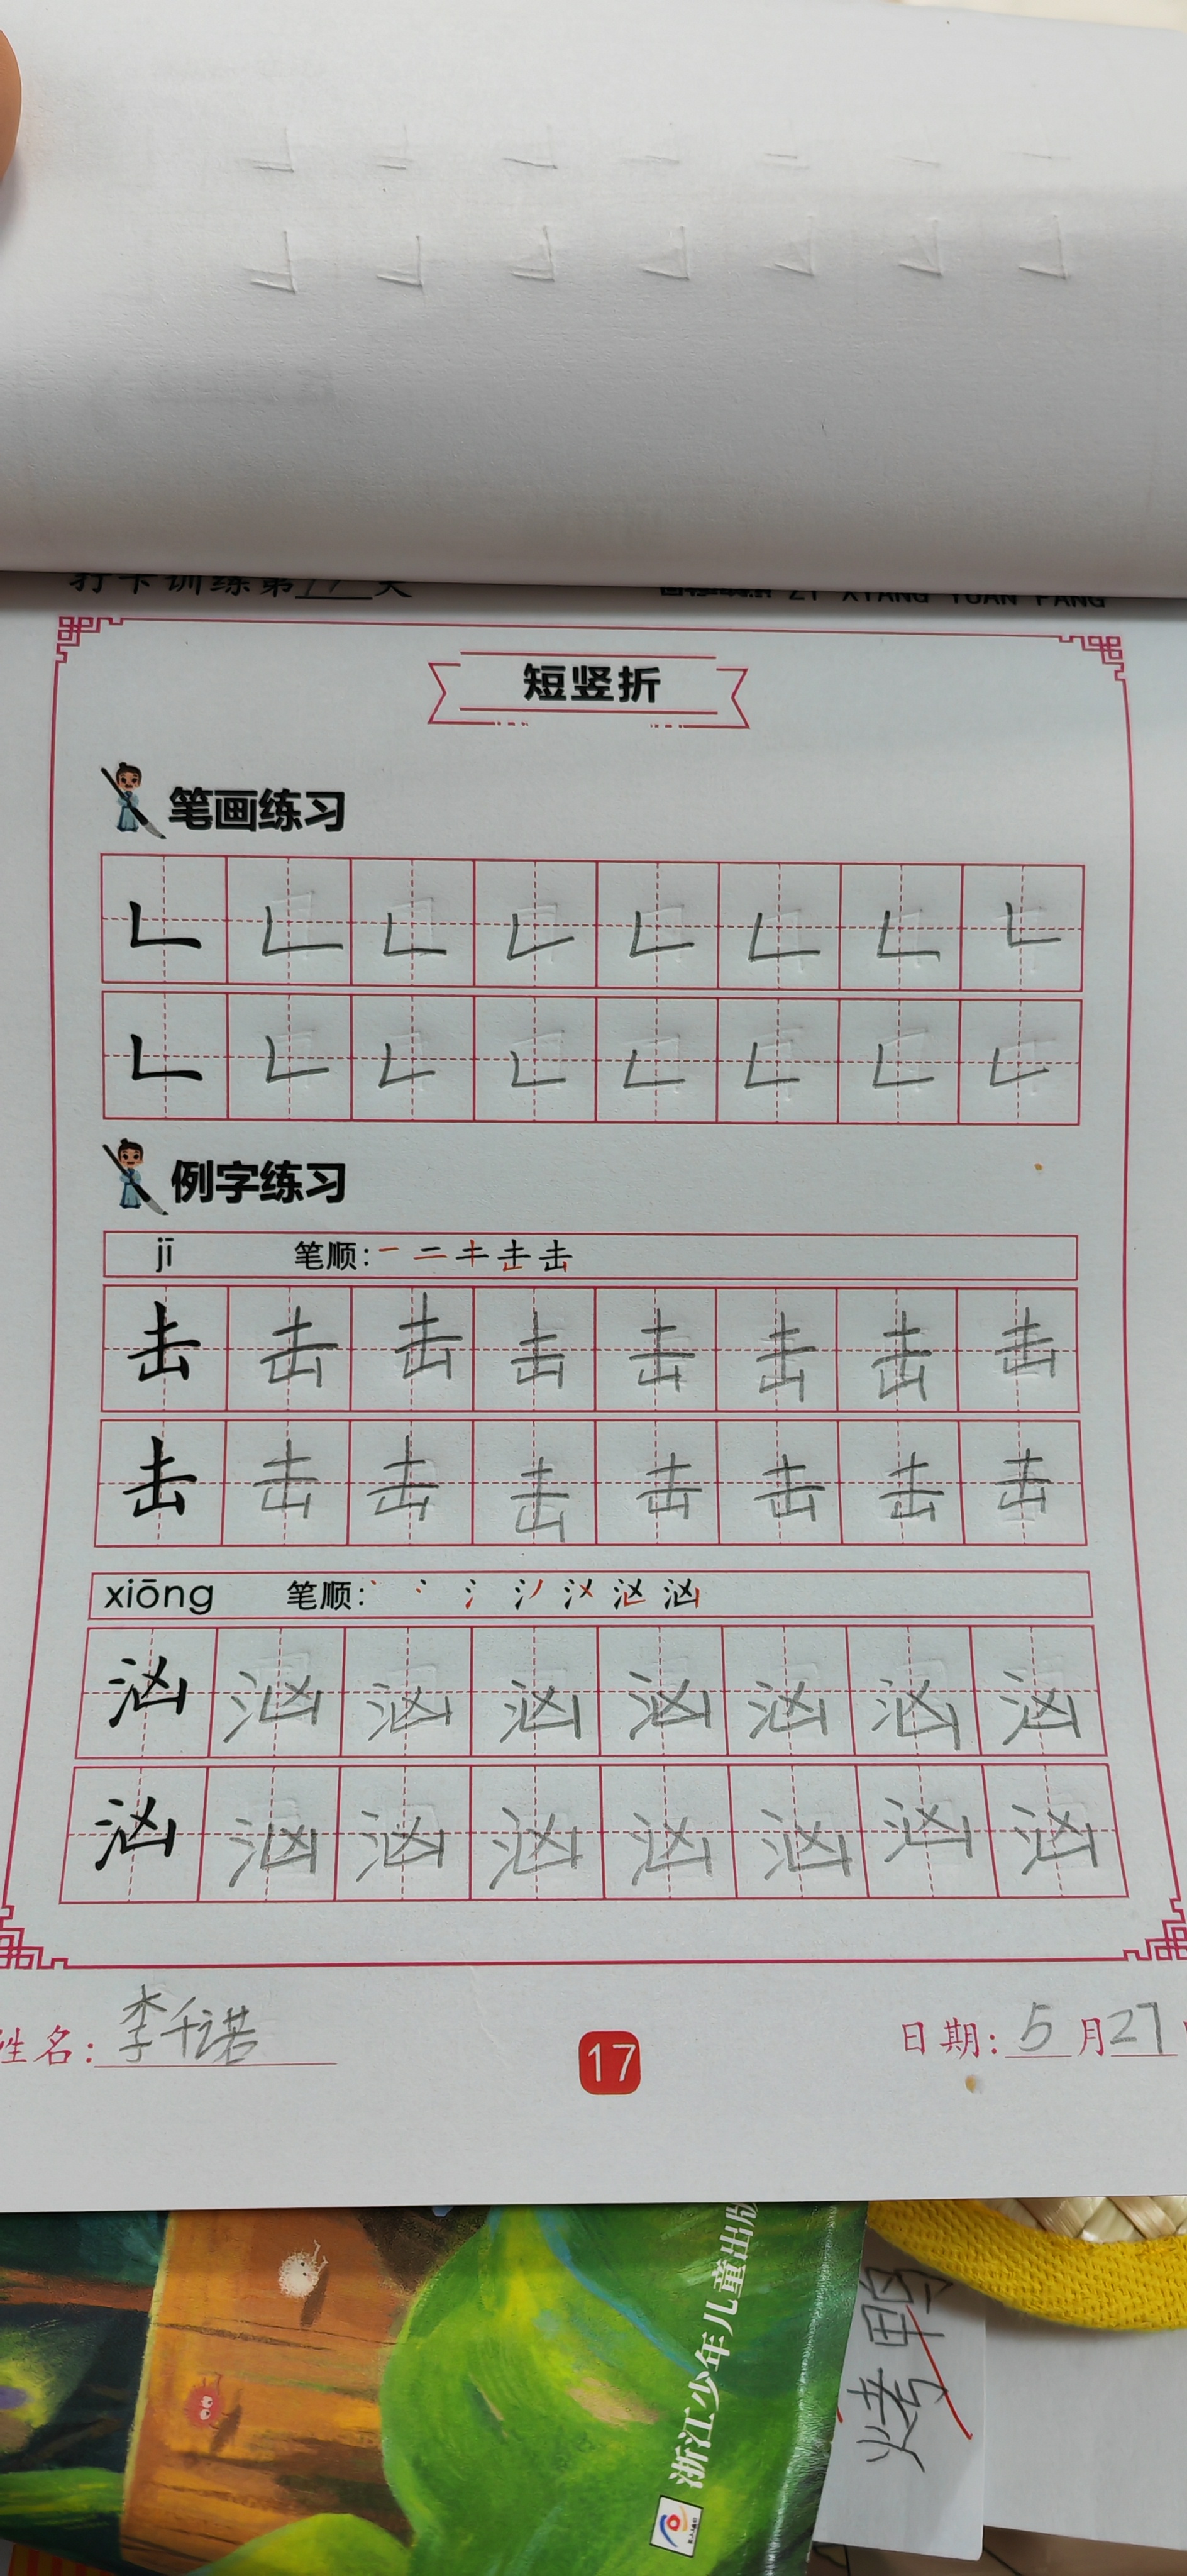 打卡训练第17天 ZI XIANG YUAN FANG
短竖折
笔画练习
例字练习
jī 笔顺:
击 击 击 击 击 击 击 击
击 击 击 击 击 击 击 击
xiōng 笔顺:
汹 汹 汹 汹 汹 汹 汹 汹
汹 汹 汹 汹 汹 汹 汹 汹
姓名: 李千诺 17 日期: 5月27
浙江少年儿童出版
烤鸭